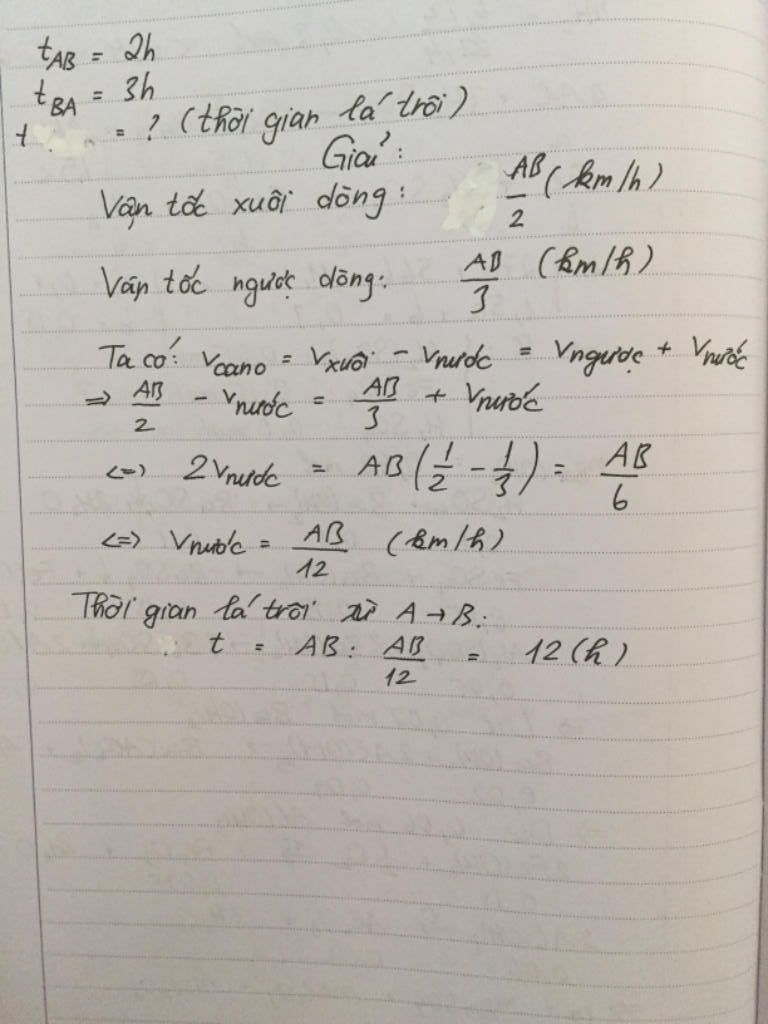 t_AB = 2h
t_BA = 3h
t = ? (thời gian lá trôi)
Giải:
Vận tốc xuôi dòng: AB/2 (km/h)
Vận tốc ngược dòng: AB/3 (km/h)
Ta có: v_cano = v_xuôi - v_nước = v_ngược + v_nước
=> AB/2 - v_nước = AB/3 + v_nước
<=> 2v_nước = AB(1/2 - 1/3) = AB/6
<=> v_nước = AB/12 (km/h)
Thời gian lá trôi từ A → B:
t = AB : AB/12 = 12(h)